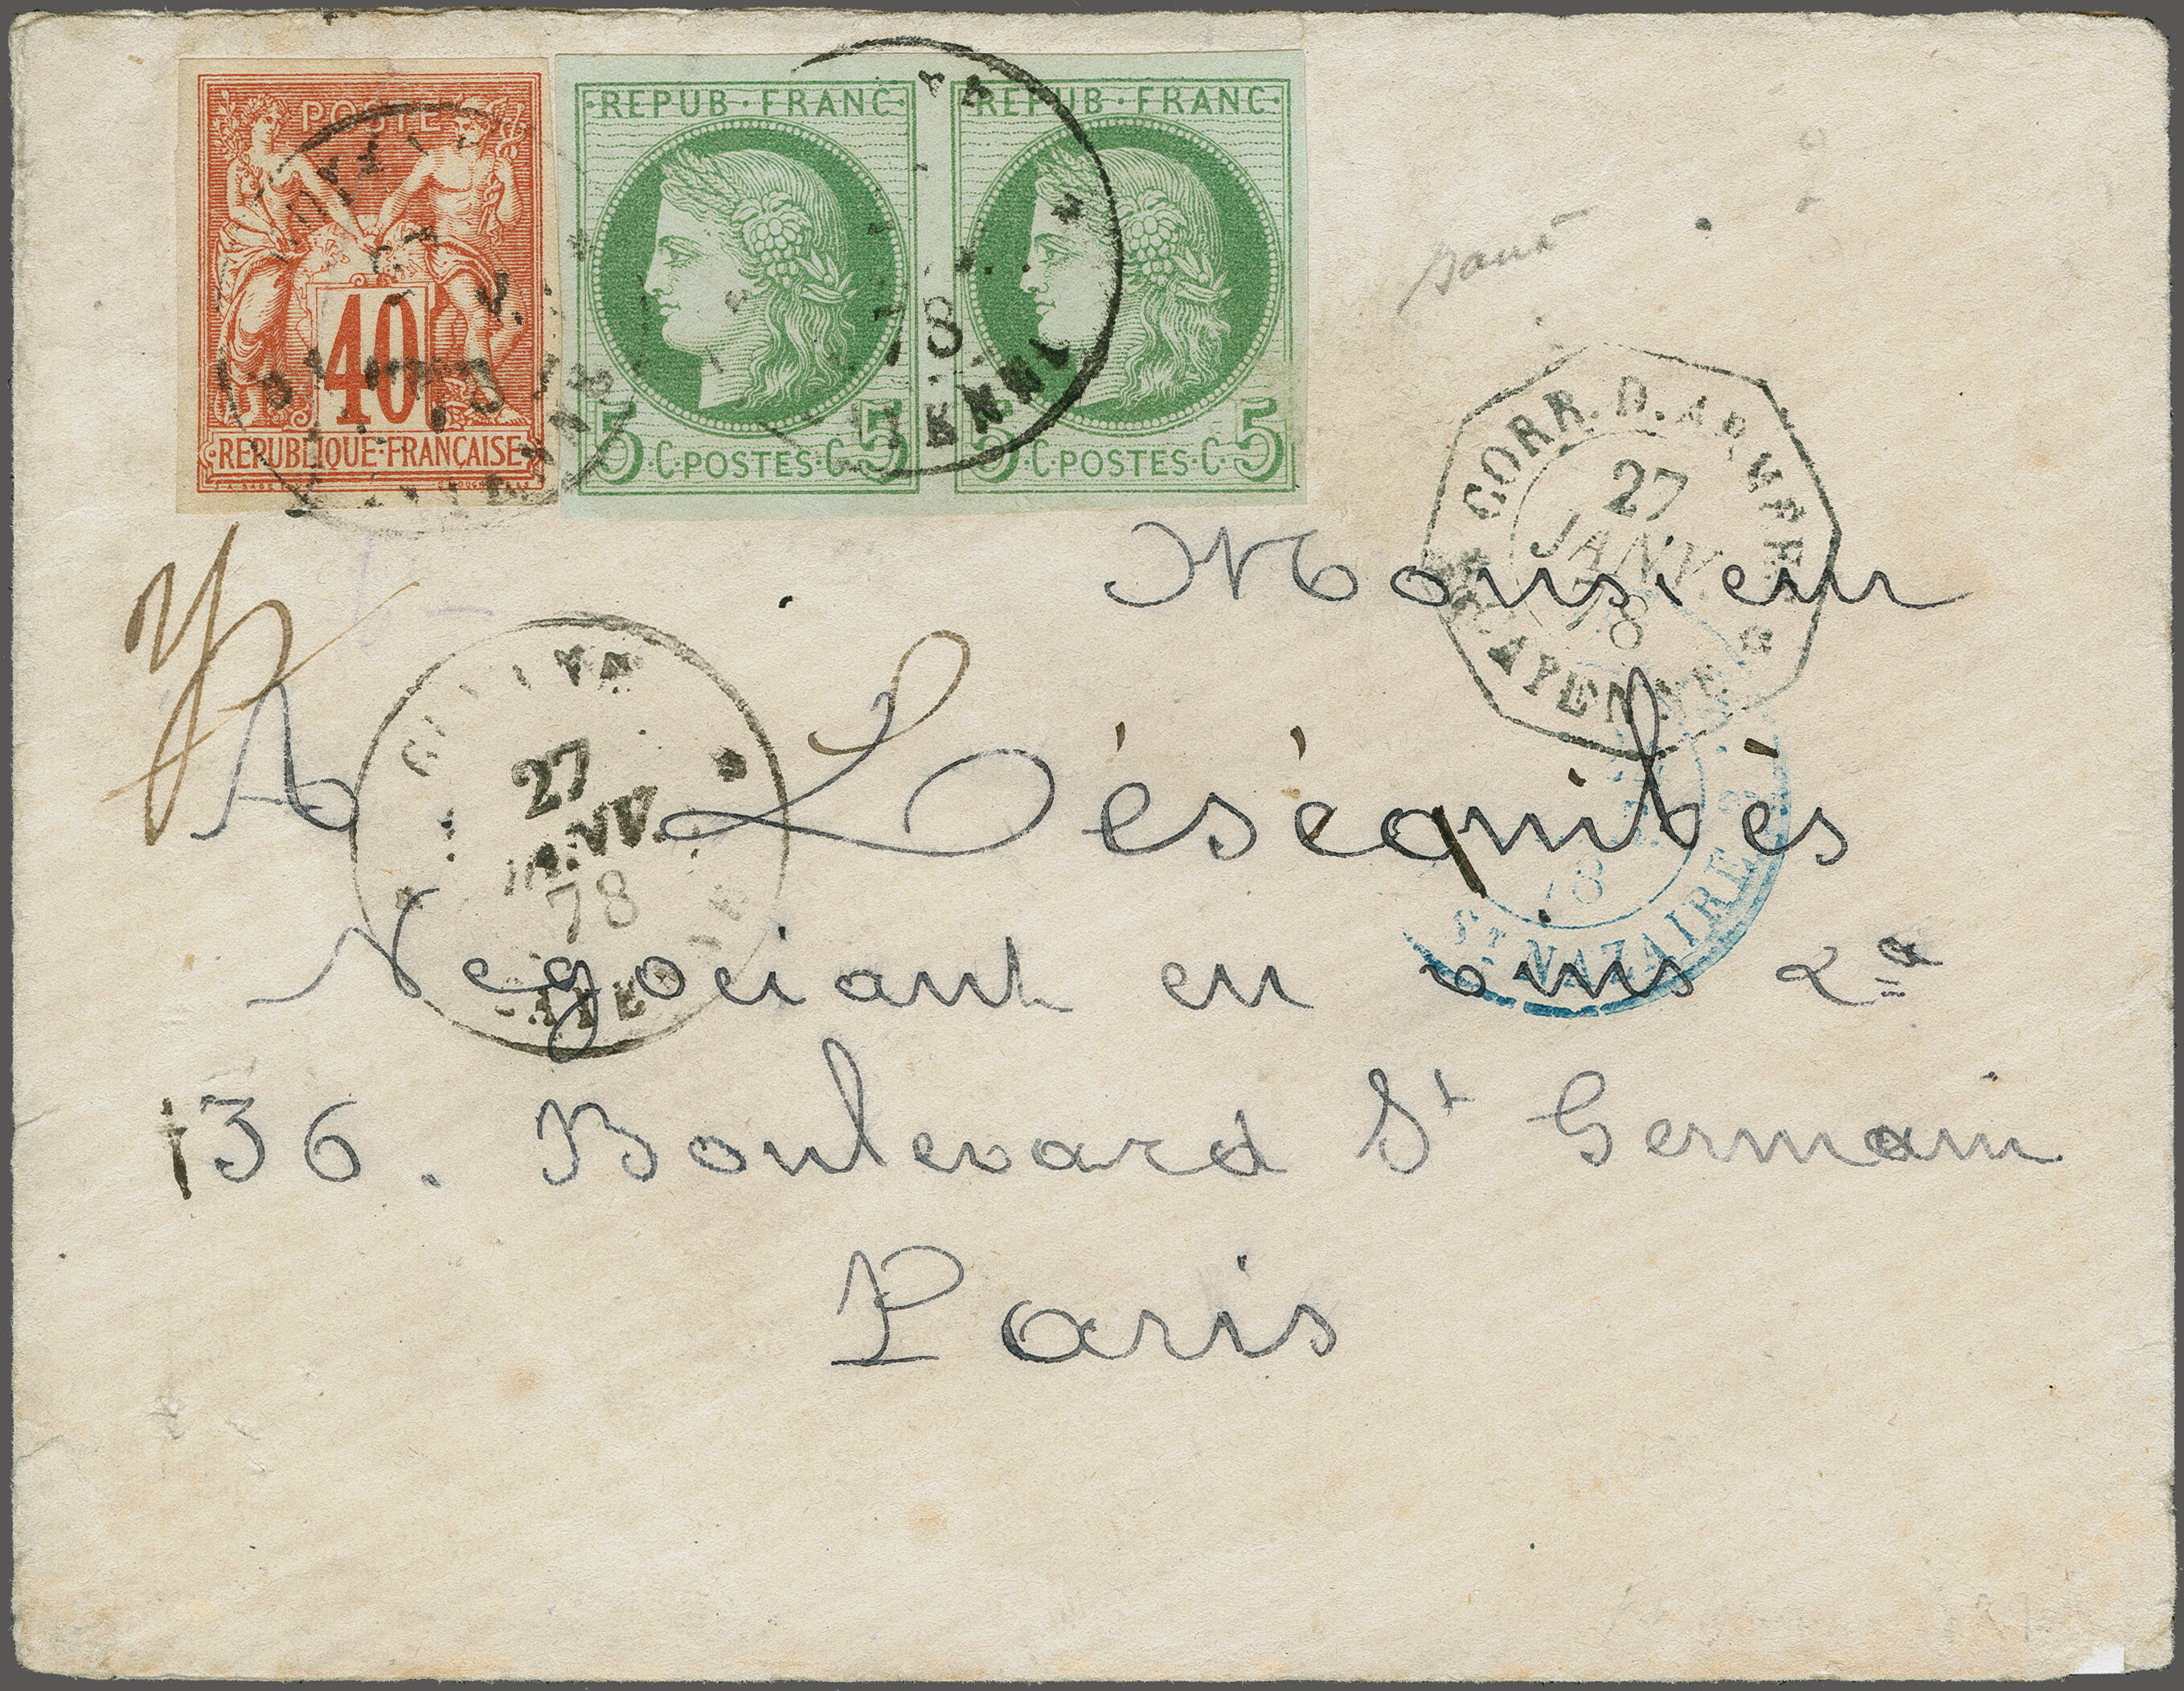 POSTE
40
REPUBLIQUE·FRANÇAISE
·REPUB·FRANC·
5·C·POSTES·C·5
·REPUB·FRANC·
5·C·POSTES·C·5
78
CORR. D. ARMÉES
27
JANV.
78
CAYENNE
Monsieur
A Léséquibès
27
JANV.
78
78
ST NAZAIRE
Négociant en vins
136. Boulevard St Germain
Paris